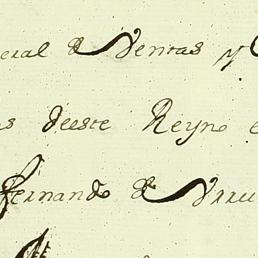 eral de Ventas y
s deeste Reyno
Fernando de Urru